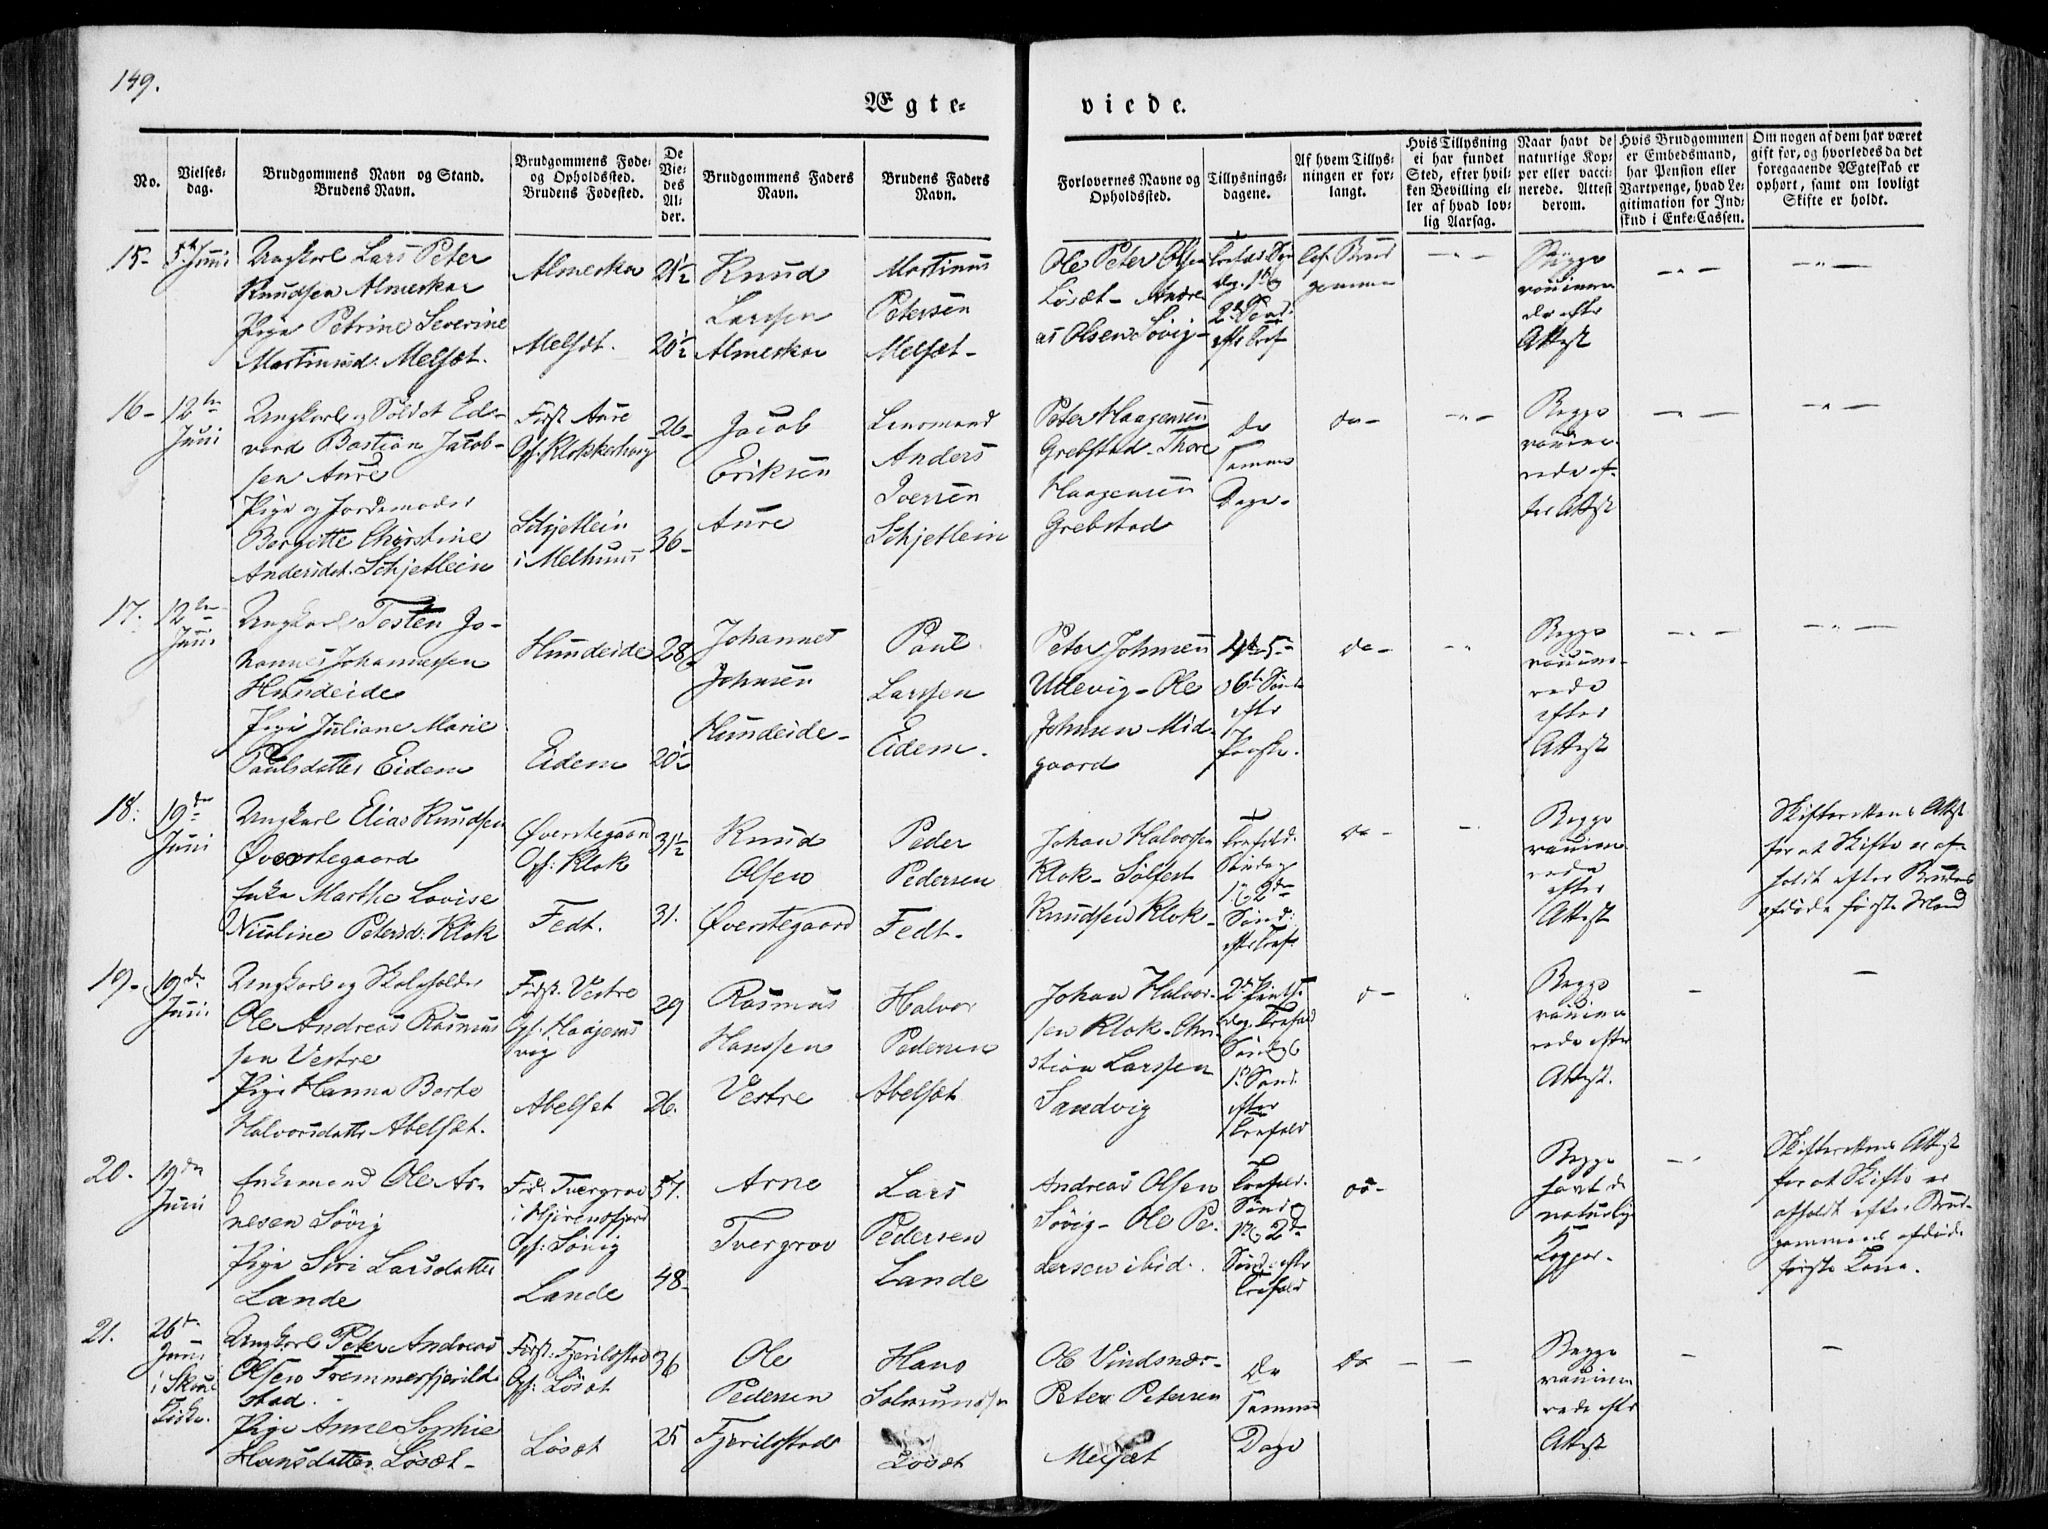 149.
Ægte-
viede.
No.
Vielses-
dag.
Brudgommens Navn og Stand.
Brudens Navn.
Brudgommens Føde-
og Opholdssted.
Brudens Fødested.
De
Vie-
des
Al-
der.
Brudgommens Faders
Navn.
Brudens Faders
Navn.
Forlovernes Navne og
Opholdssted.
Tillysnings-
dagene.
Af hvem Tillys-
ningen er for-
langt.
Hvis Tillysning
ei har fundet
Sted, efter hvil-
ken Bevilling el-
ler af hvad lov-
lig Aarsag.
Naar havt de
naturlige Kop-
per eller vacci-
nerede. Attest
derom.
Hvis Brudgommen
er Embedsmand,
har Pension eller
Vartpenge, hvad Le-
gitimation for Ind-
skud i Enke-Cassen.
Om nogen af dem har været
gift før, og hvorledes da det
foregaaende Ægteskab er
ophørt, samt om lovligt
Skifte er holdt.
15-
5te Juni
Ungkarl Lars Peter
Knudsen Almeskar
Pige Petrine Severine
Martinusd. Melsæt.
Almeskar
Melsæt.
21½
20½
Knud
Larssen
Almeskar
Martinus
Petersen
Melsæt-
Ole Peter Olsen
Løsæt- Andre
as Olsen Søvig-
Trefolds Søn
dag, 1ste og
2den Sønd:
efter Tref
Af Brud
gommen
Begge
vaccinere
de efter
Attest
16-
12te
Juni
Ungkarl og Soldat Ed-
vard Bastian Jacob-
sen Aure
Pige og Jordemoder
Bergitte Christine
Andersdt. Schjetlein
Født Aure
Oph: Klokkerhoug
Schjetlein
i Melhuus
26-
36-
Jacob
Eriksen
Aure
Lensmand
Anders
Iversen
Schjetlein
Peter Haagensen
Grebstad- Thore
Haagensen
Grebstad
de
samme
Dage-
do-
Begge
vaccine-
rede ef-
ter Attest
17.
12te
Juni
Ungkarl Tosten Jo-
hannes Johannessen
Hundeide
Pige Juliane Marie
Paulsdatter Eidem
Hundeide
Eidem
28-
20½
Johannes
Johnsen
Hundeide-
Paul
Larssen
Eidem.
Peter Johnsen
Utvevig- Ole
Johnsen Mid-
gaard
4de 5te
og 6te Sønd.
efter
Paaske.
do-
Begge
vaccine-
rede
efter
Attest
18.
19de
Juni
Ungkarl Elias Knudsen
Øverstegaard
Enke Marthe Lovise
Nicoline Petersd: Klok
Øverstegaard
Oph: Klok
Fedt.
31½
31.
Knud
Olsen
Øverstegaard
Peder
Pedersen
Fedt-
Johan Halvorsen
Klok- Sølfest
Knudsen Klok-
Trefold:
Søndag
1ste og 2den
Sønd:
efter Tref:
do-
Begge
vaccine
rede
efter
Attest
Skifterettens Attest
for at Skifte er af-
holdt efter Brudens
afdøde første Mand
19-
19de
Juni
Ungkarl og Skoleholder
Ole Andreas Rasmus
sen Vestre
Pige Hanna Berte
Halvorsdatter Abelsæt.
Født: Vestre
Oph: Haagens
vig
Abelsæt
29
26.
Rasmus
Hanssen
Vestre
Halvor
Pedersen
Abelsæt
Johan Halvor-
sen Klok- Chri
stian Larssen
Sandvig
2den Pintse
dag, Trefold
Søndag og
1ste Sønd.
efter
Trefold
do-
Begge
vaccine
rede efter
Attest.
20.
19de
Juni
Enkemand Ole Ar-
nesen Søvig
Pige Siri Larsdatter
Lande
Fød: Tvergrov
i Hjørensfjord
Oph: Søvig
Lande
57.
48-
Arne
Tvergrov
Lars
Pedersen
Lande
Andreas Olsen
Søvig- Ole Pe-
dersen ibid.
Trefold:
Sønd. og
1ste og 2den
Sønd: efter
Trefold
do-
Begge
havt de
naturlige
Kopper-
Skifterettens Attest
for at Skifte er
afholdt efter Brud-
gommens afdøde
første Kone.
21.
26de
Juni
i Skoue
Kirke.
Ungkarl Peter Andreas
Olsen Fremmerfjerild-
stad.
Pige Anne Sophie
Hansdatter Løsæt-
Født: Fjerildstad
Oph: Løsæt
Løsæt
36
25
Ole
Pedersen
Fjerildstad
Hans
Salmundsen
Løsæt
Ole Vindsnæs-
Peter Petersen
Melsæt
de
samme
Dage
do
Begge
vaccine
rede efter
Attest